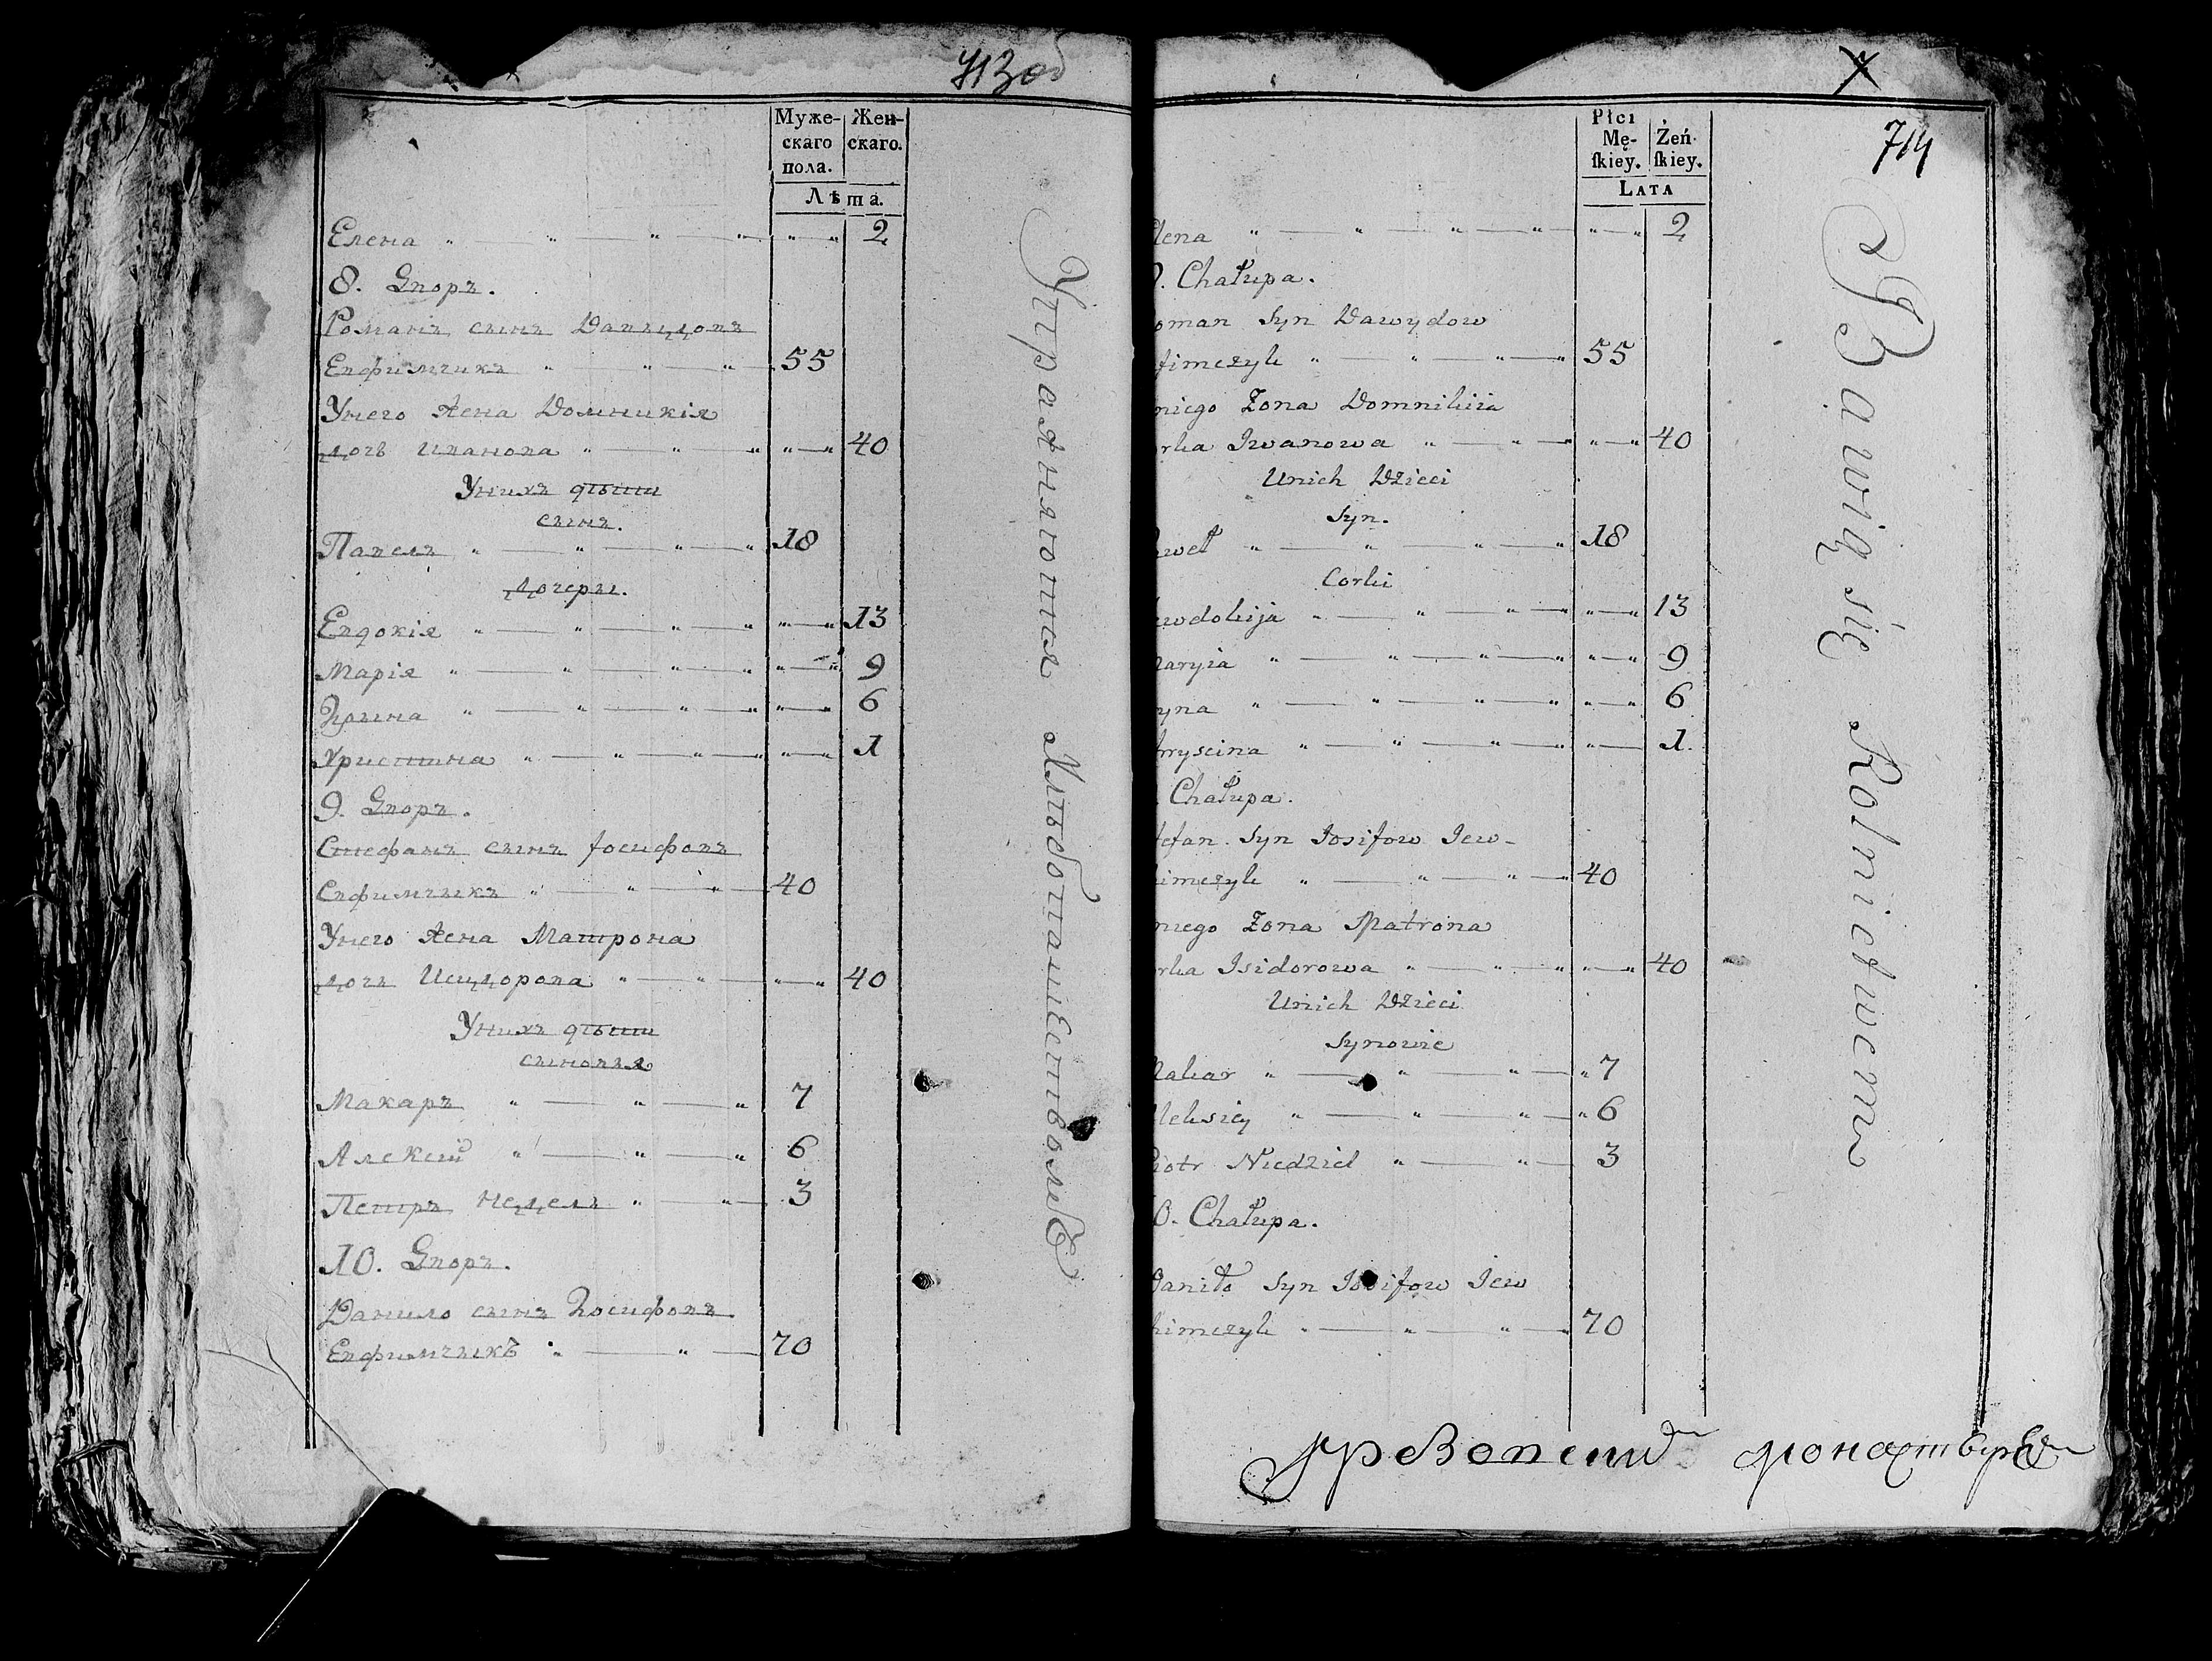 713 об
Муже-
скаго
пола.
Жен-
скаго.
Лѣта.
Елена 2
8. Дворъ.
Романъ сынъ Давыдовъ
Евфимчикъ 55
Унего жена Домникія
дочь иванова 40
Унихъ дѣти
сынъ.
Павелъ 18
дочери.
Евдокія 13
Марія 9
Ирина 6
Христина 1
9. Дворъ.
Стефанъ сынъ Іосифовъ
Евфимчыкъ 40
Унего жена Матрона
дочь Исидорова 40
Унихъ дѣти
сыновья
Макаръ 7
Алексій 6
Петръ неделъ 3
10. Дворъ.
Данило сынъ Іосифовъ
Евфимчыкъ 70
Упражняются Хлѣбопашествомъ
714
Płci
Mę-
ſkiey.
Żeń-
ſkiey.
Lata
lena 2
. Chałupa.
oman Syn Dawydow
fimczyk 55
niego Żona Domnikiia
rka Iwanowa 40
Unich Dzieci
Syn.
weł 18
Corki
wdokija 13
aryia 9
yna 6
ryscina 1.
. Chałupa.
tefan Syn Iosifow Iew-
imczyk 40
niego Żona Matrona
rka Isidorowa 40
Unich Dzieci
Synowie
akar 7
leksiey 6
iotr Niedziel 3
0. Chałupa.
Daniło Syn Iosifow Iew
himczyk 70
Bawią się Rolnictwem